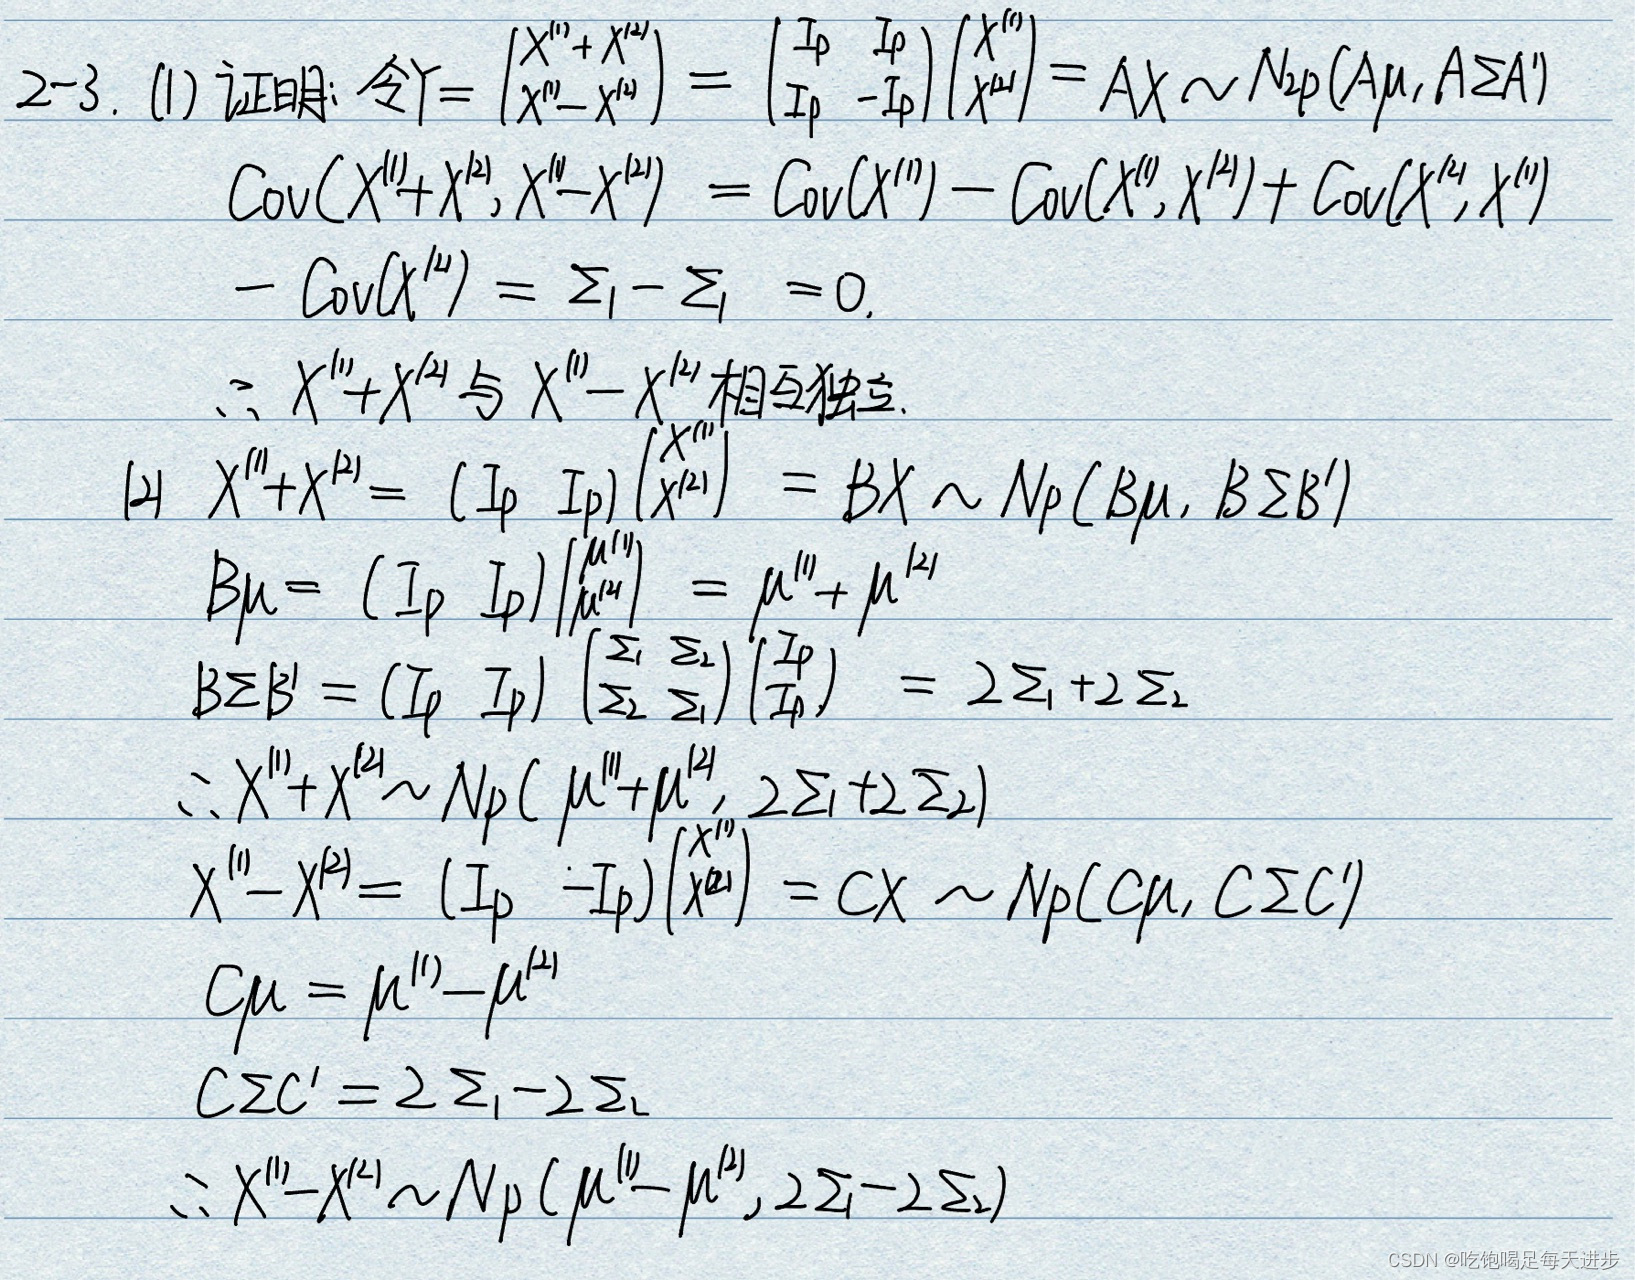 2-3. (1) 证明: 令Y = (X^(1)+X^(2) ; X^(1)-X^(2)) = (Ip Ip ; Ip -Ip)(X^(1) ; X^(2)) = AX ~ N2p(Aμ, AΣA')
Cov(X^(1)+X^(2), X^(1)-X^(2)) = Cov(X^(1)) - Cov(X^(1), X^(2)) + Cov(X^(2), X^(1))
- Cov(X^(2)) = Σ1 - Σ1 = 0.
∴ X^(1)+X^(2) 与 X^(1)-X^(2) 相互独立.
(2) X^(1)+X^(2) = (Ip Ip)(X^(1) ; X^(2)) = BX ~ Np(Bμ, BΣB')
Bμ = (Ip Ip)(μ^(1) ; μ^(2)) = μ^(1)+μ^(2)
BΣB' = (Ip Ip)(Σ1 Σ2 ; Σ2 Σ1)(Ip ; Ip) = 2Σ1+2Σ2
∴ X^(1)+X^(2) ~ Np(μ^(1)+μ^(2), 2Σ1+2Σ2)
X^(1)-X^(2) = (Ip -Ip)(X^(1) ; X^(2)) = CX ~ Np(Cμ, CΣC')
Cμ = μ^(1)-μ^(2)
CΣC' = 2Σ1-2Σ2
∴ X^(1)-X^(2) ~ Np(μ^(1)-μ^(2), 2Σ1-2Σ2)
CSDN @吃饱喝足每天进步